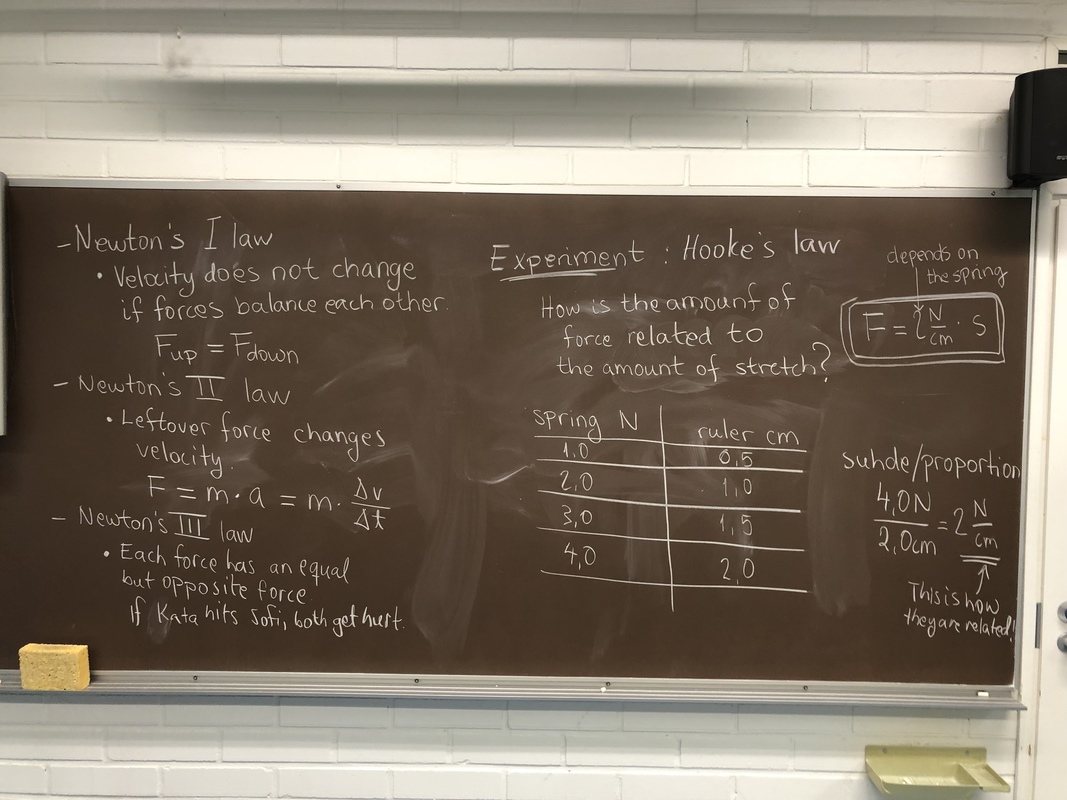 - Newton's I law
• Velocity does not change
if forces balance each other.
Fup = Fdown
- Newton's II law
• Leftover force changes
velocity.
F = m · a = m · Δv/Δt
- Newton's III law
• Each force has an equal
but opposite force.
If Kata hits Sofi, both get hurt.
Experiment : Hooke's law
How is the amount of
force related to
the amount of stretch?
spring N | ruler cm
1,0 | 0,5
2,0 | 1,0
3,0 | 1,5
4,0 | 2,0
depends on
the spring
F = 2 N/cm · s
suhde/proportion
4,0N/2,0cm = 2 N/cm
This is how
they are related!